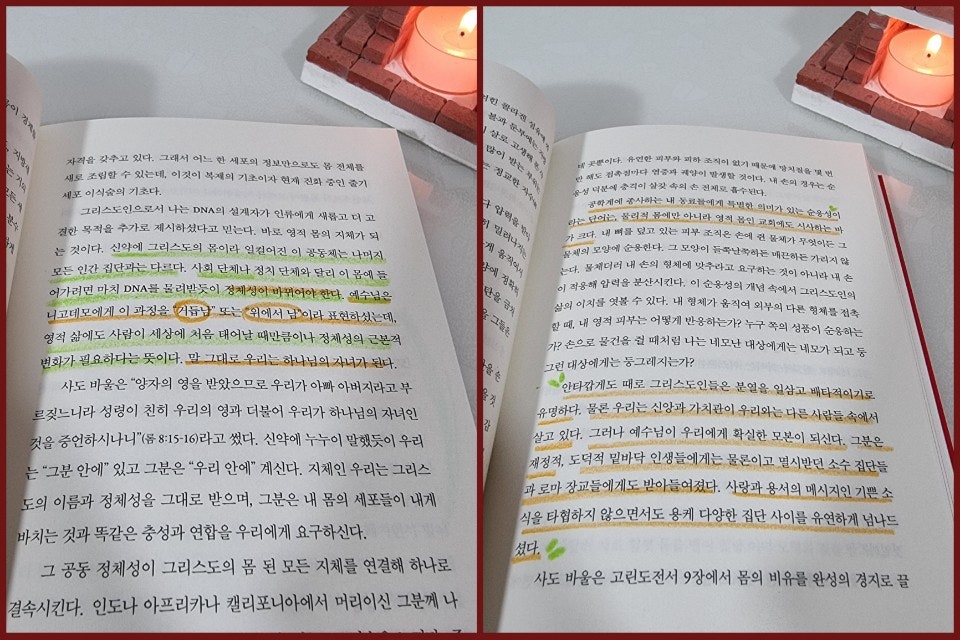 자격을 갖추고 있다. 그래서 어느 한 세포의 정보만으로도 몸 전체를
새로 조립할 수 있는데, 이것이 복제의 기초이자 현재 진화 중인 줄기
세포 이식술의 기초다.
그리스도인으로서 나는 DNA의 설계자가 인류에게 새롭고 더 고
결한 목적을 추가로 제시하셨다고 믿는다. 바로 영적 몸의 지체가 되
는 것이다. 신약에 그리스도의 몸이라 일컬어진 이 공동체는 나머지
모든 인간 집단과는 다르다. 사회 단체나 정치 단체와 달리 이 몸에 들
어가려면 마치 DNA를 물리받듯이 정체성이 바뀌어야 한다. 예수님은
니고데모에게 이 과정을 “거듭남” 또는 “위에서 남”이라 표현하셨는데,
영적 삶에도 사람이 세상에 처음 태어날 때만큼이나 정체성의 근본적
변화가 필요하다는 뜻이다. 말 그대로 우리는 하나님의 자녀가 된다.
사도 바울은 “양자의 영을 받았으므로 우리가 아빠 아버지라고 부
르짖느니라 성령이 친히 우리의 영과 더불어 우리가 하나님의 자녀인
것을 증언하시나니”(롬 8:15-16)라고 썼다. 신약에 누누이 말했듯이 우리
는 “그분 안에” 있고 그분은 “우리 안에” 계신다. 지체인 우리는 그리스
도의 이름과 정체성을 그대로 받으며, 그분은 내 몸의 세포들이 내게
바치는 것과 똑같은 충성과 연합을 우리에게 요구하신다.
그 공동 정체성이 그리스도의 몸 된 모든 지체를 연결해 하나로
결속시킨다. 인도나 아프리카나 캘리포니아에서 머리이신 그분께 나
데 곳뿐이다. 유연한 피부와 피하 조직이 없기 때문에 망치질을 몇 번
만 해도 접촉점마다 염증과 궤양이 발생할 것이다. 내 손의 경우는 순
응성 덕분에 충격이 살갗 속의 손 전체로 흡수된다.
공학계에 종사하는 내 동료들에게 특별한 의미가 있는 순응성이
라는 단어는, 물리적 몸에만 아니라 영적 몸인 교회에도 시사하는 바
가 크다. 내 뼈를 덮고 있는 피부 조직은 손에 쥔 물체가 무엇이든 그
물체의 모양에 순응한다. 그 모양이 들쭉날쭉하든 매끈하든 가리지 않
는다. 물체더러 내 손의 형체에 맞추라고 요구하는 것이 아니라 내 손
이 적응해 압력을 분산시킨다. 이 순응성의 개념 속에서 그리스도인의
삶의 이치를 엿볼 수 있다. 내 형체가 움직여 외부의 다른 형체를 접촉
할 때, 내 영적 피부는 어떻게 반응하는가? 누구 쪽의 성품이 순응하는
가? 손으로 물건을 쥘 때처럼 나는 네모난 대상에게는 네모가 되고 둥
그런 대상에게는 둥그레지는가?
안타깝게도 때로 그리스도인들은 분열을 일삼고 배타적이기로
유명하다. 물론 우리는 신앙과 가치관이 우리와는 다른 사람들 속에서
살고 있다. 그러나 예수님이 우리에게 확실한 모본이 되신다. 그분은
재정적, 도덕적 밑바닥 인생들에게는 물론이고 멸시받던 소수 집단들
과 로마 장교들에게도 받아들여졌다. 사랑과 용서의 메시지인 기쁜 소
식을 타협하지 않으면서도 용케 다양한 집단 사이를 유연하게 넘나드
셨다.
사도 바울은 고린도전서 9장에서 몸의 비유를 완성의 경지로 끌